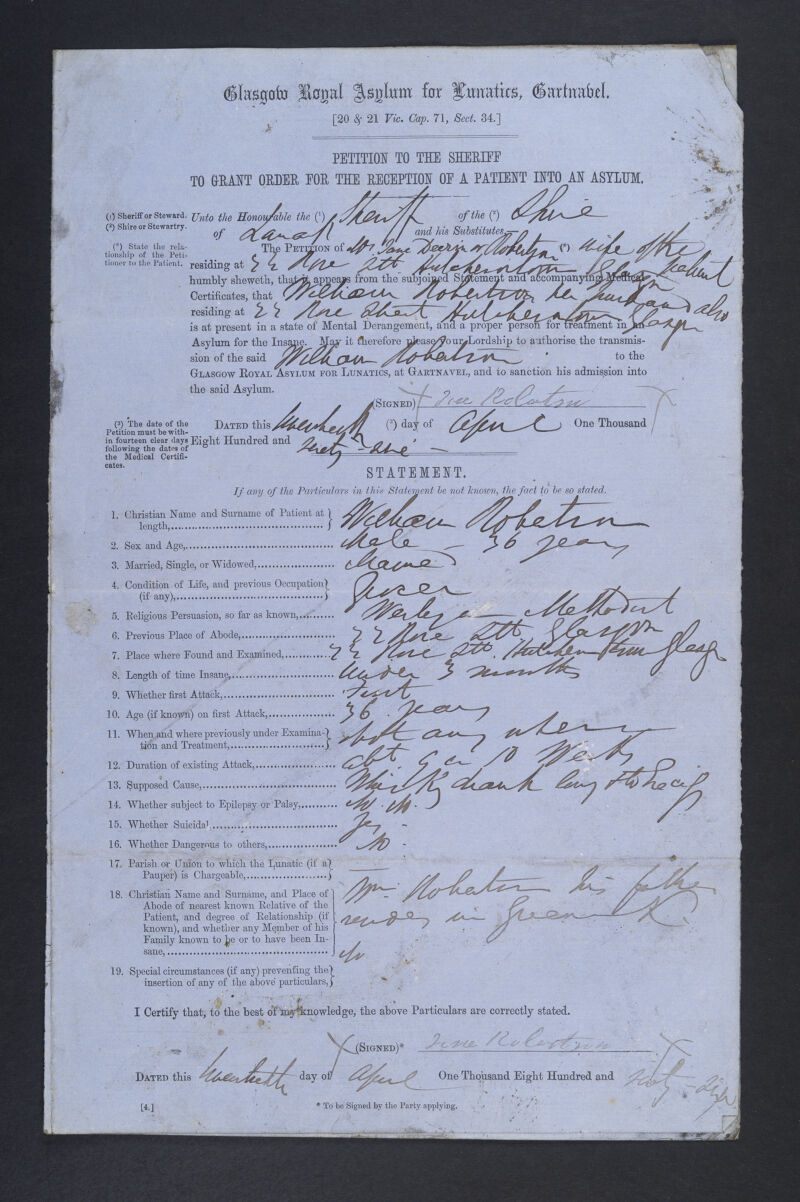 Glasgow Royal Asylum for Lunatics, Gartnavel.
[20 & 21 Vic. Cap. 71, Sect. 34.]
PETITION TO THE SHERIFF
TO GRANT ORDER FOR THE RECEPTION OF A PATIENT INTO AN ASYLUM.
(1) Sheriff or Steward.
(2) Shire or Stewartry.
(*) State the relationship of the Petitioner to the Patient.
Unto the Honourable the (1) Sheriff of the (2) Shire
of Lanark and his Substitutes,
The PETITION of Mrs Jane or Robertson (*) wife of the patient
residing at Rose Stt Hutchesontown Glasgow
humbly sheweth, that it appears from the subjoined Statement and accompanying Medical
Certificates, that William Robertson her husband also
residing at Rose Street Hutchesontown Glasgow
is at present in a state of Mental Derangement, and a proper person for treatment in an
Asylum for the Insane. May it therefore please your Lordship to authorise the transmis-
sion of the said William Robertson to the
GLASGOW ROYAL ASYLUM FOR LUNATICS, AT GARTNAVEL, and to sanction his admission into
the said Asylum.
(SIGNED) Robertson
(3) The date of the Petition must be within fourteen clear days following the dates of the Medical Certificates.
DATED this twentieth (3) day of April One Thousand
Eight Hundred and
STATEMENT.
If any of the Particulars in this Statement be not known, the fact to be so stated.
1. Christian Name and Surname of Patient at length, William Robertson
2. Sex and Age, Male - 36 years
3. Married, Single, or Widowed, Married
4. Condition of Life, and previous Occupation (if any), Grocer
5. Religious Persuasion, so far as known, Wesleyan Methodist
6. Previous Place of Abode, Rose Stt Glasgow
7. Place where Found and Examined, Rose Stt. Hutchesontown Glasgow
8. Length of time Insane, Under 3 months
9. Whether first Attack, First
10. Age (if known) on first Attack, 36 years
11. When and where previously under Examination and Treatment, Not any where
12. Duration of existing Attack, abt 9 or 10 Weeks
13. Supposed Cause, Whisky drank
14. Whether subject to Epilepsy or Palsy, No. No.
15. Whether Suicidal Yes -
16. Whether Dangerous to others, No -
17. Parish or Union to which the Lunatic (if a Pauper) is Chargeable,
18. Christian Name and Surname, and Place of Abode of nearest known Relative of the Patient, and degree of Relationship (if known), and whether any Member of his Family known to be or to have been Insane, Wm Robertson his father resides in Greenock. No
19. Special circumstances (if any) preventing the insertion of any of the above particulars,
I Certify that, to the best of my knowledge, the above Particulars are correctly stated.
(SIGNED)* Robertson
DATED this twentieth day of April One Thousand Eight Hundred and
[4.]
* To be Signed by the Party applying.